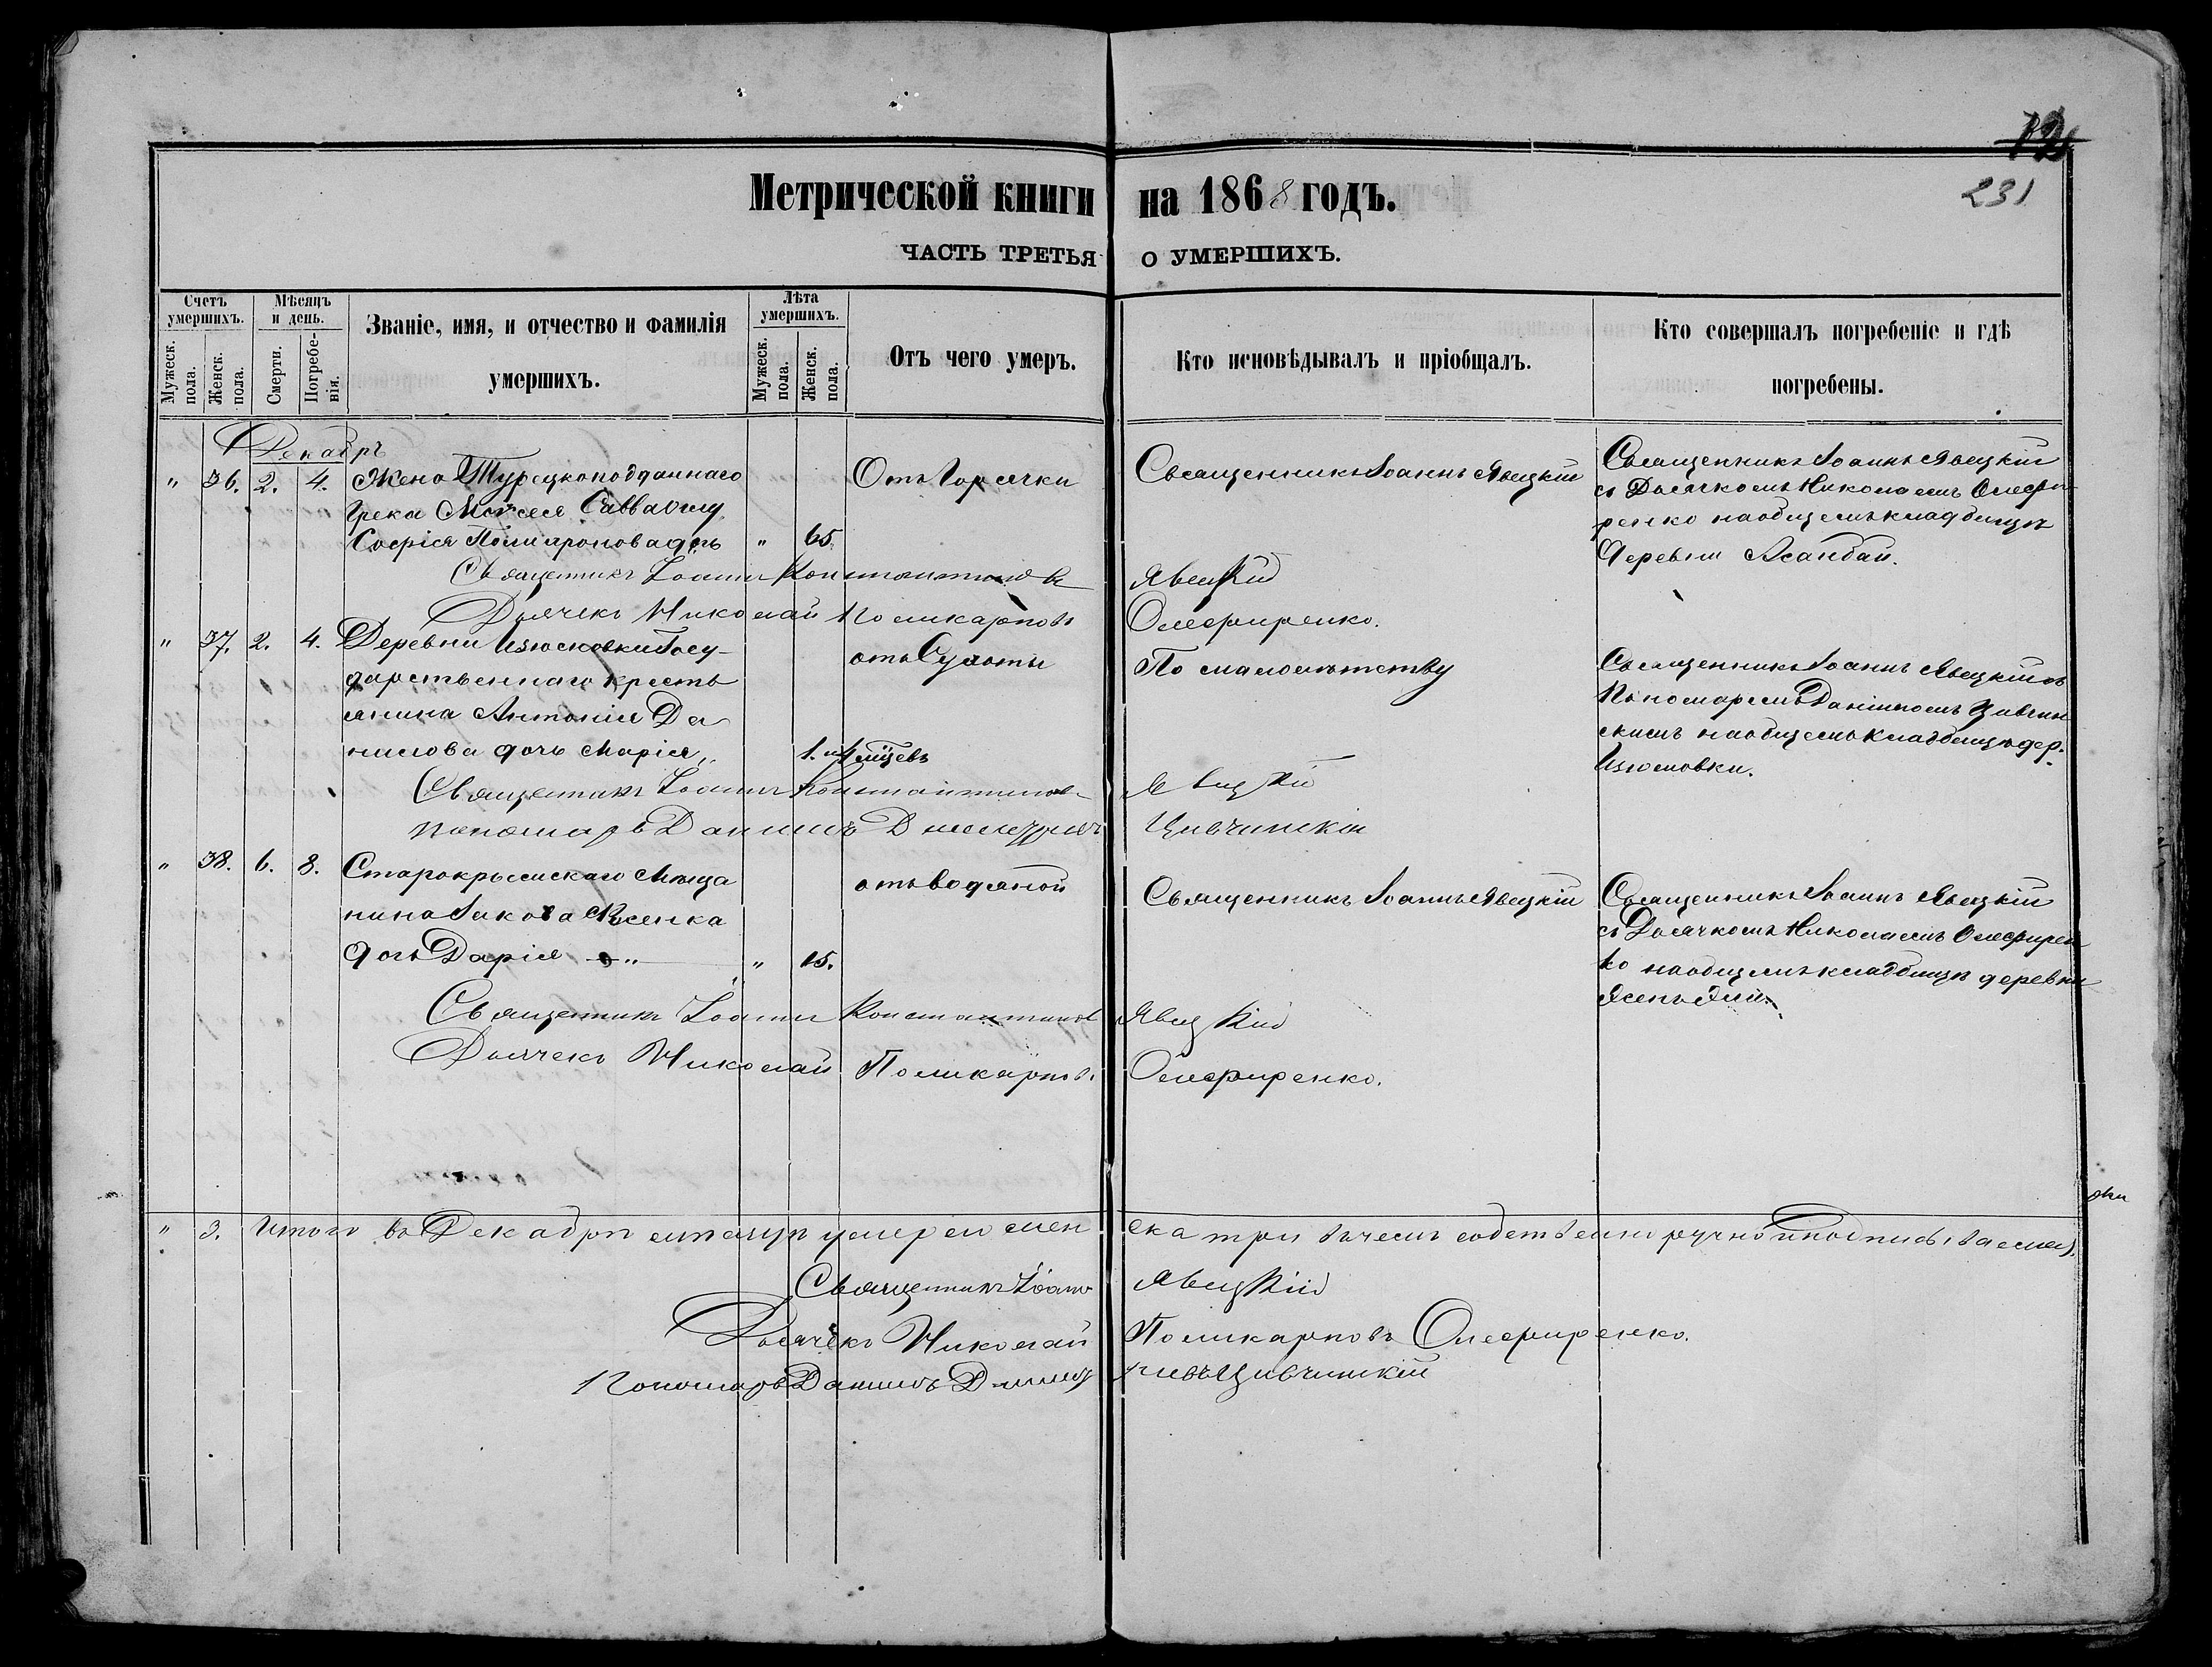 231
Метрической книги на 1868 годъ.
ЧАСТЬ ТРЕТЬЯ О УМЕРШИХЪ.
Счетъ умершихъ.
Мужеск. пола.
Женск. пола.
Мѣсяцъ и день.
Смерти.
Погребенія.
Званіе, имя, и отчество и фамилія
умершихъ.
Лѣта умершихъ.
Мужеск. пола.
Женск. пола.
Отъ чего умеръ.
Кто исповѣдывалъ и пріобщалъ.
Кто совершалъ погребеніе и гдѣ
погребены.
Декабрь
" 36. 2. 4. Жена Турецкоподданнаго
Грека Моисея
Софія " 65.
Отъ Горячки
Священникъ Іоаннъ Явецкій
Священникъ Іоаннъ Явецкій
съ Дьячкомъ Николаемъ Олефи-
ренко на общемъ кладбищѣ
Деревни Асанбай.
Священникъ Іоаннъ Константиновъ Явецкій
Дьячекъ Николай Поликарповъ Олефиренко.
" 37. 2. 4. Деревни Изюмовки Госу-
дарственнаго кресть
янина Антонія Да
нилова дочь Марія "
отъ Сухоты
По малолѣтству
Священникъ Іоаннъ Явецкій съ
Пономаремъ Даніиломъ Цивчин
скимъ на общемъ кладбищѣ дер.
Изюмовки.
Священникъ Іоаннъ Константиновъ Явецкій
Пономарь Даніилъ Цивчинскій
" 38. 6. 8. Старокрымскаго Мѣща
нина Іакова
дочь Дарія " 15.
отъ водяной
Священникъ Іоаннъ Явецкій
Священникъ Іоаннъ Явецкій
съ Дьячкомъ Николаемъ Олефирен
ко на общемъ кладбищѣ деревни
Священникъ Іоаннъ Константиновъ Явецкій
Дьячекъ Николай Поликарповъ Олефиренко.
" 3. Итого въ Декабрѣ мѣсяцѣ умерло женска три въ чемъ собственноручно подписываемся.
Священникъ Іоаннъ Явецкій
Дьячекъ Николай Поликарповъ Олефиренко.
Пономарь Даніилъ Цивчинскій